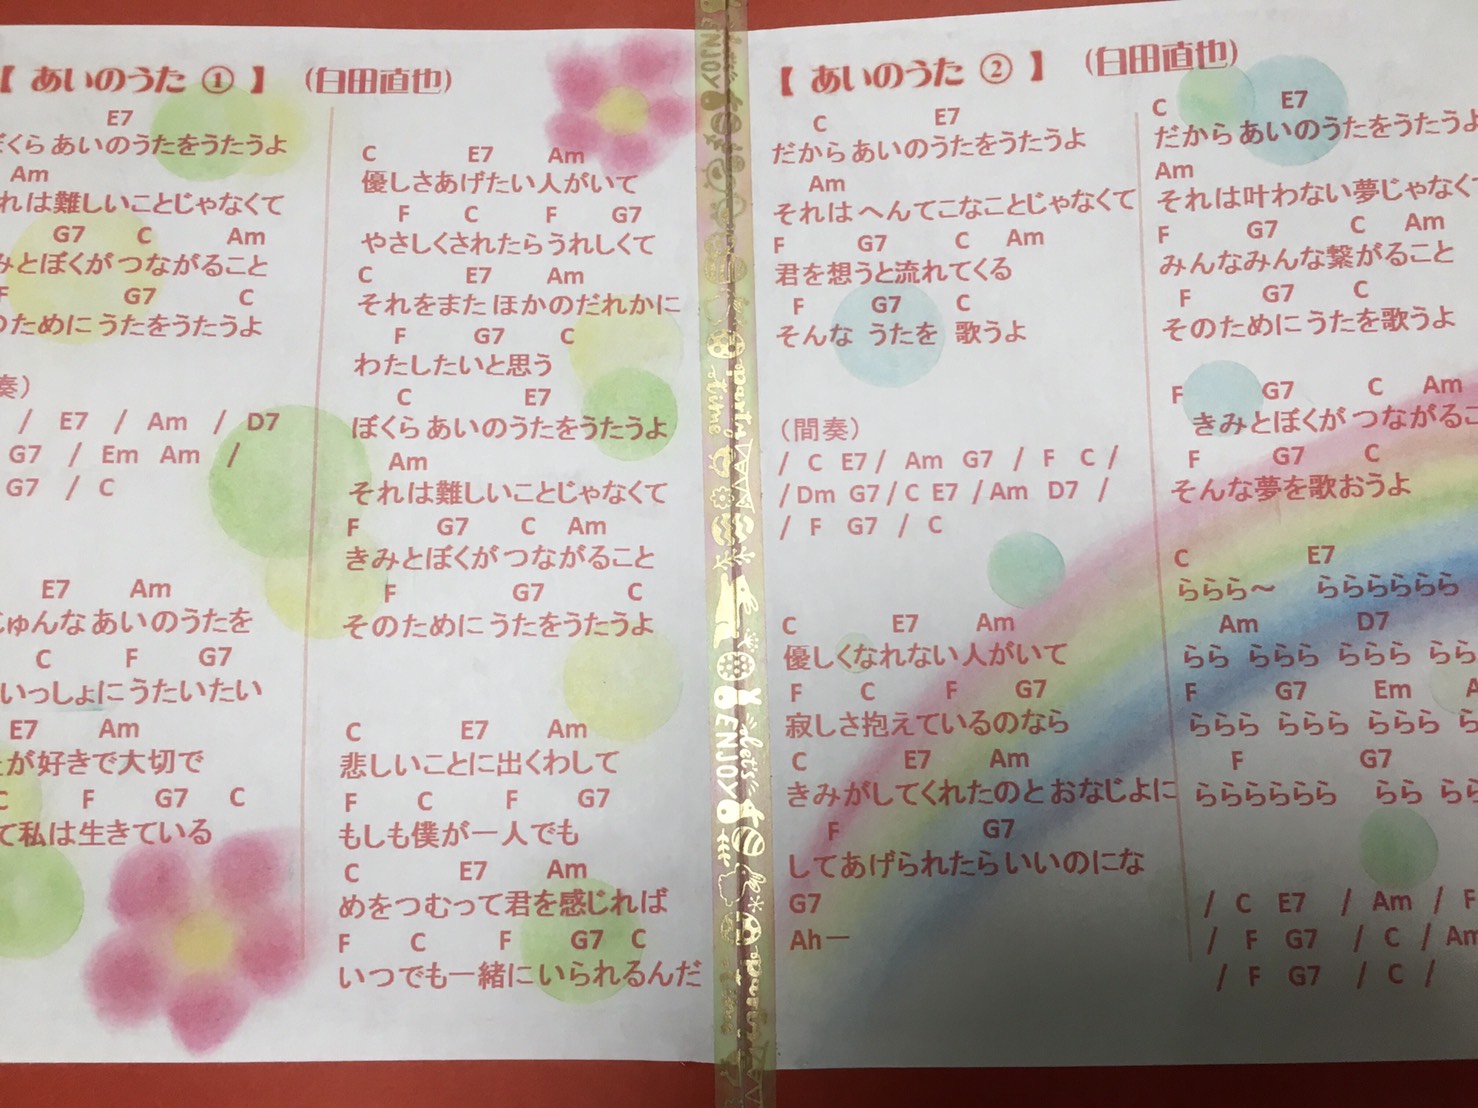 【 あいのうた ① 】 (白田直也)
E7
ぼくら あいのうたをうたうよ
Am
れは難しいことじゃなくて
G7 C Am
みとぼくが つながること
F G7 C
のために うたをうたうよ
奏）
/ E7 / Am / D7
G7 / Em Am /
G7 / C
E7 Am
じゅんな あいのうたを
C F G7
いっしょにうたいたい
E7 Am
が好きで大切で
C F G7 C
て私は生きている
C E7 Am
優しさあげたい人がいて
F C F G7
やさしくされたらうれしくて
C E7 Am
それをまた ほかのだれかに
F G7 C
わたしたいと思う
C E7
ぼくら あいのうたをうたうよ
Am
それは難しいことじゃなくて
F G7 C Am
きみとぼくが つながること
F G7 C
そのために うたをうたうよ
C E7 Am
悲しいことに出くわして
F C F G7
もしも僕が一人でも
C E7 Am
めをつむって君を感じれば
F C F G7 C
いつでも一緒にいられるんだ
ENJOY
party time
ENJOY
let's
party time
【 あいのうた ② 】 (白田直也)
C E7
だから あいのうたをうたうよ
Am
それは へんてこなことじゃなくて
F G7 C Am
君を想うと流れてくる
F G7 C
そんな うたを 歌うよ
（間奏）
/ C E7 / Am G7 / F C /
/ Dm G7 / C E7 / Am D7 /
/ F G7 / C
C E7 Am
優しくなれない人がいて
F C F G7
寂しさ抱えているのなら
C E7 Am
きみがしてくれたのと おなじよに
F G7
してあげられたら いいのにな
G7
Ah―
C E7
だから あいのうたをうたうよ
Am
それは叶わない夢じゃなくて
F G7 C Am
みんなみんな繋がること
F G7 C
そのためにうたを歌うよ
F G7 C Am
きみとぼくが つながるこ
F G7 C
そんな夢を歌おうよ
C E7
ららら～ らららららら
Am D7
らら ららら ららら らら
F G7 Em A
ららら ららら ららら ら
F G7
らららららら らら らら
/ C E7 / Am / F
/ F G7 / C / Am
/ F G7 / C /